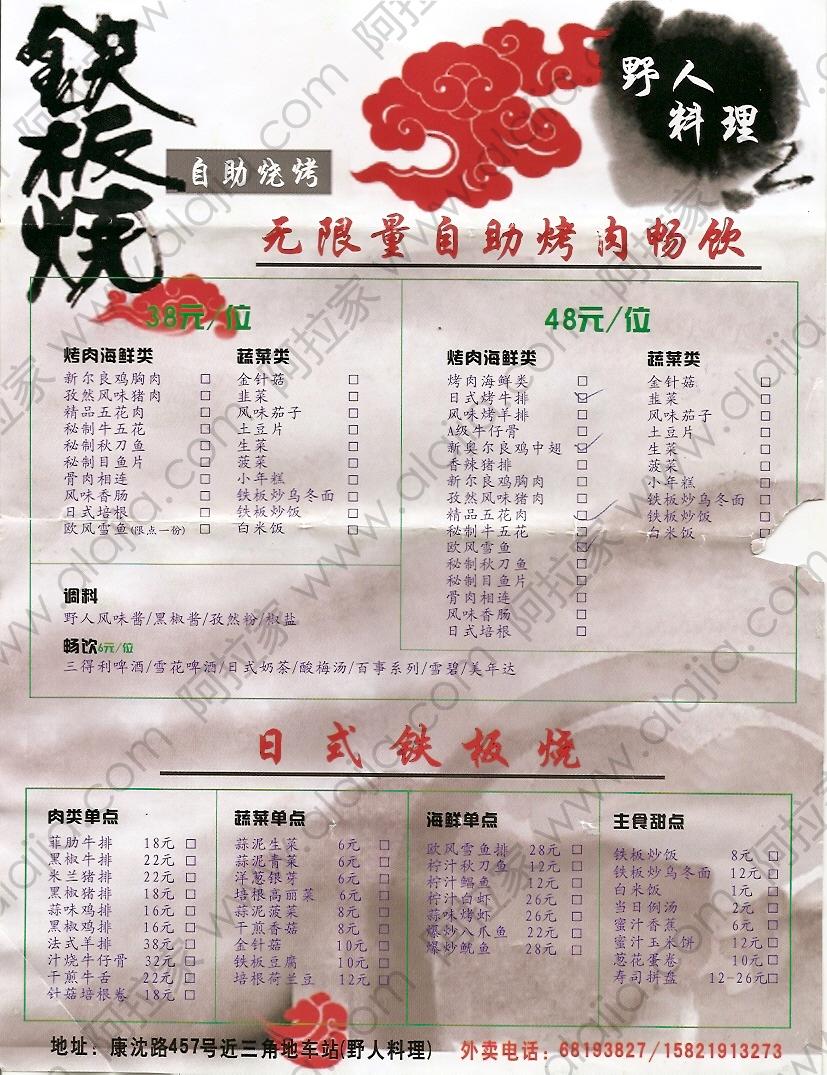 鉄板燒
自助烧烤
野人
料理
无限量自助烤肉畅饮
38元/位
烤肉海鲜类
新尔良鸡胸肉 □
孜然风味猪肉 □
精品五花肉 □
秘制牛五花 □
秘制秋刀鱼 □
秘制目鱼片 □
骨肉相连 □
风味香肠 □
日式培根 □
欧风雪鱼(限点一份) □
蔬菜类
金针菇 □
韭菜 □
风味茄子 □
土豆片 □
生菜 □
菠菜 □
小年糕 □
铁板炒乌冬面 □
铁板炒饭 □
白米饭 □
调料
野人风味酱/黑椒酱/孜然粉/椒盐
畅饮6元/位
三得利啤酒/雪花啤酒/日式奶茶/酸梅汤/百事系列/雪碧/美年达
48元/位
烤肉海鲜类
烤肉海鲜类 □
日式烤牛排 □
风味烤羊排 □
A级牛仔骨 □
新奥尔良鸡中翅 □
香辣猪排 □
新尔良鸡胸肉 □
孜然风味猪肉 □
精品五花肉 □
秘制牛五花 □
欧风雪鱼 □
秘制秋刀鱼 □
秘制目鱼片 □
骨肉相连 □
风味香肠 □
日式培根 □
蔬菜类
金针菇 □
韭菜 □
风味茄子 □
土豆片 □
生菜 □
菠菜 □
小年糕 □
铁板炒乌冬面 □
铁板炒饭 □
白米饭 □
日式铁板烧
肉类单点
菲肋牛排 18元 □
黑椒牛排 22元 □
米兰猪排 22元 □
黑椒猪排 18元 □
蒜味鸡排 16元 □
黑椒鸡排 16元 □
法式羊排 38元 □
汁烧牛仔骨 32元 □
干煎牛舌 22元 □
针菇培根卷 18元 □
蔬菜单点
蒜泥生菜 6元 □
蒜泥青菜 6元 □
洋葱银芽 6元 □
培根高丽菜 6元 □
蒜泥菠菜 8元 □
干煎香菇 8元 □
金针菇 10元 □
铁板豆腐 10元 □
培根荷兰豆 12元 □
海鲜单点
欧风雪鱼排 28元 □
柠汁秋刀鱼 12元 □
柠汁鲳鱼 12元 □
柠汁白虾 26元 □
蒜味烤虾 26元 □
爆炒八爪鱼 22元 □
爆炒鱿鱼 28元 □
主食甜点
铁板炒饭 8元 □
铁板炒乌冬面 12元 □
白米饭 1元 □
当日例汤 2元 □
蜜汁香蕉 6元 □
蜜汁玉米饼 12元 □
葱花蛋卷 10元 □
寿司拼盘 12-26元 □
地址：康沈路457号近三角地车站(野人料理)
外卖电话：68193827/15821913273
阿拉家 www.alajia.com